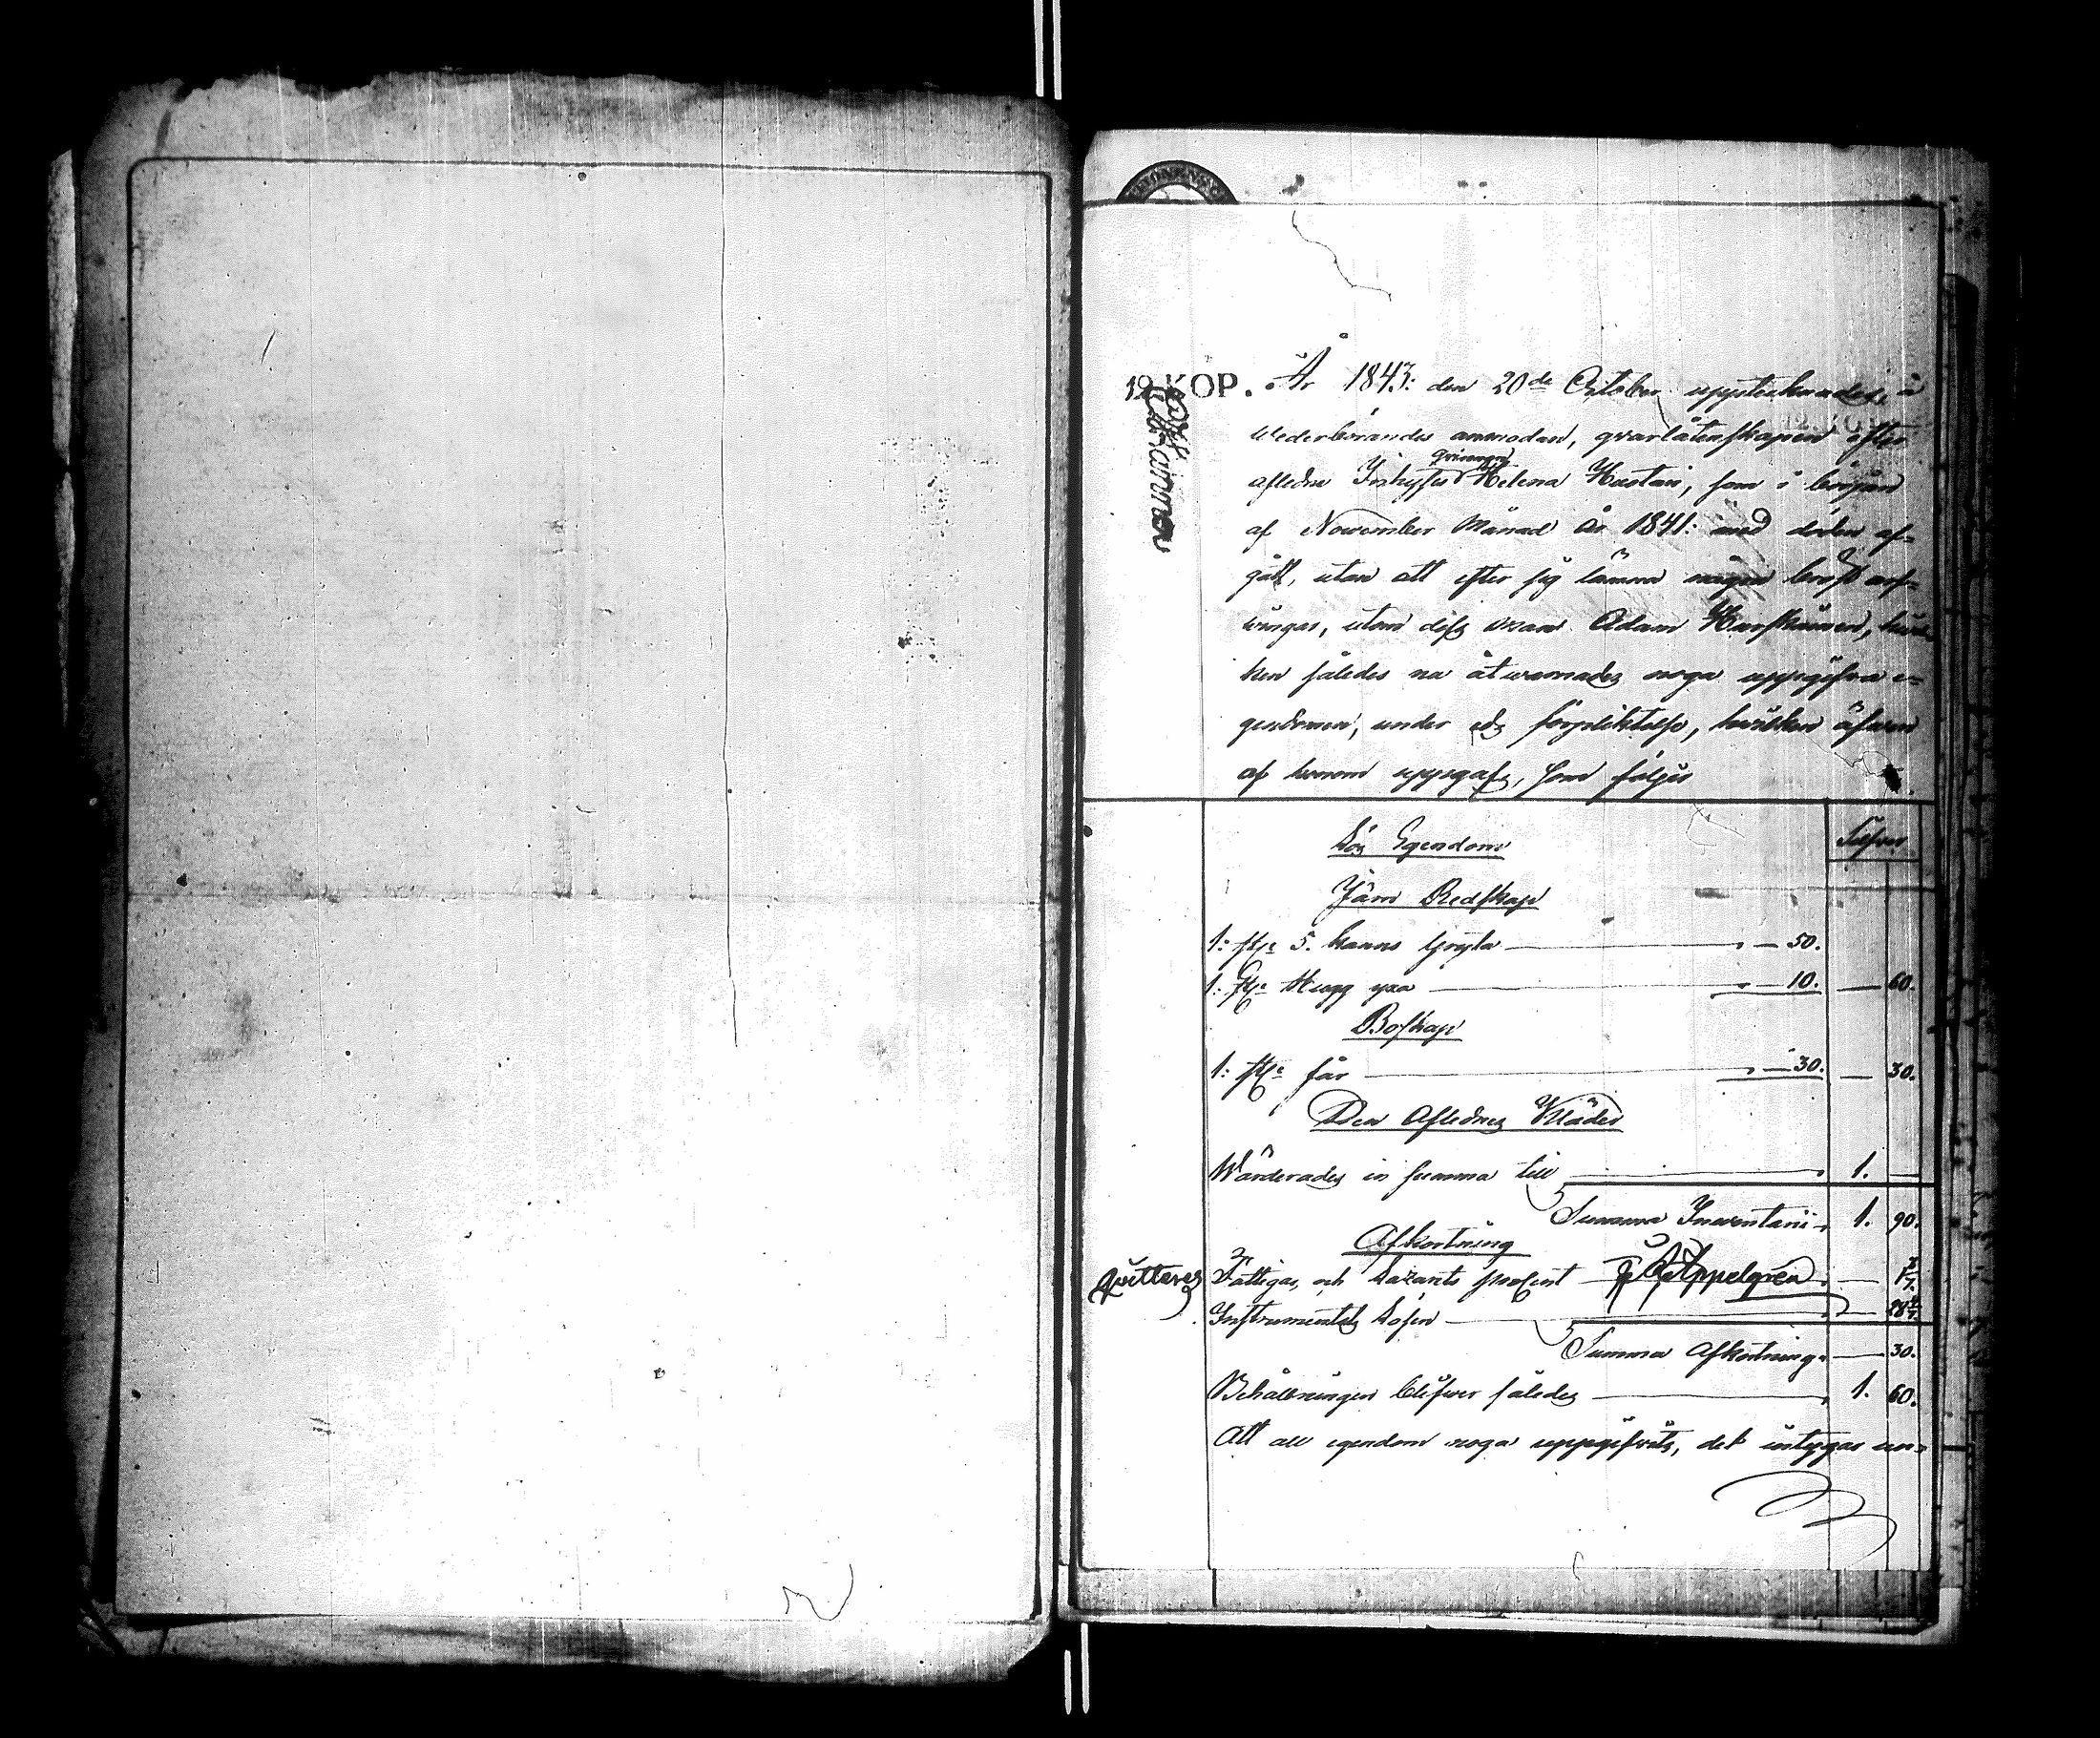 12 KOP. År 1843: den 20de October upptecknades, å
wederbörandes anmodan, qvarlåtenskapen efter
aflednе Inhyses qvinnan Helena Hustari, som i början
af November Månad år 1841: med döden af-
gått, utan att efter sig lämna någon bröst arf-
wingar, utom dess man Adam, hwil-
ken således nu åtwarnades noga uppgifwa e-
gendomen, under eds förpliktelse, hwilken äfwen
af honom uppgafs, som följer
Silfver
Lös Egendom
Järn Redskap
1: st: 5. kanns gryta — 50.
1: st: Hugg yxa — 10. — 60.
Boskap
1: st: får — 30. — 30.
Den Aflednes Kläder
Wärderades in summa till 1. —
Summa Inventarii 1. 90.
Afkortning
Quitteras Fattigas, och procent Appelgren —
Instrumentets lösen — 28 4/7
Summa Afkortning — 30.
Behållningen blifwer således 1. 60.
Att all egendom noga uppgifwits, det intygas un-